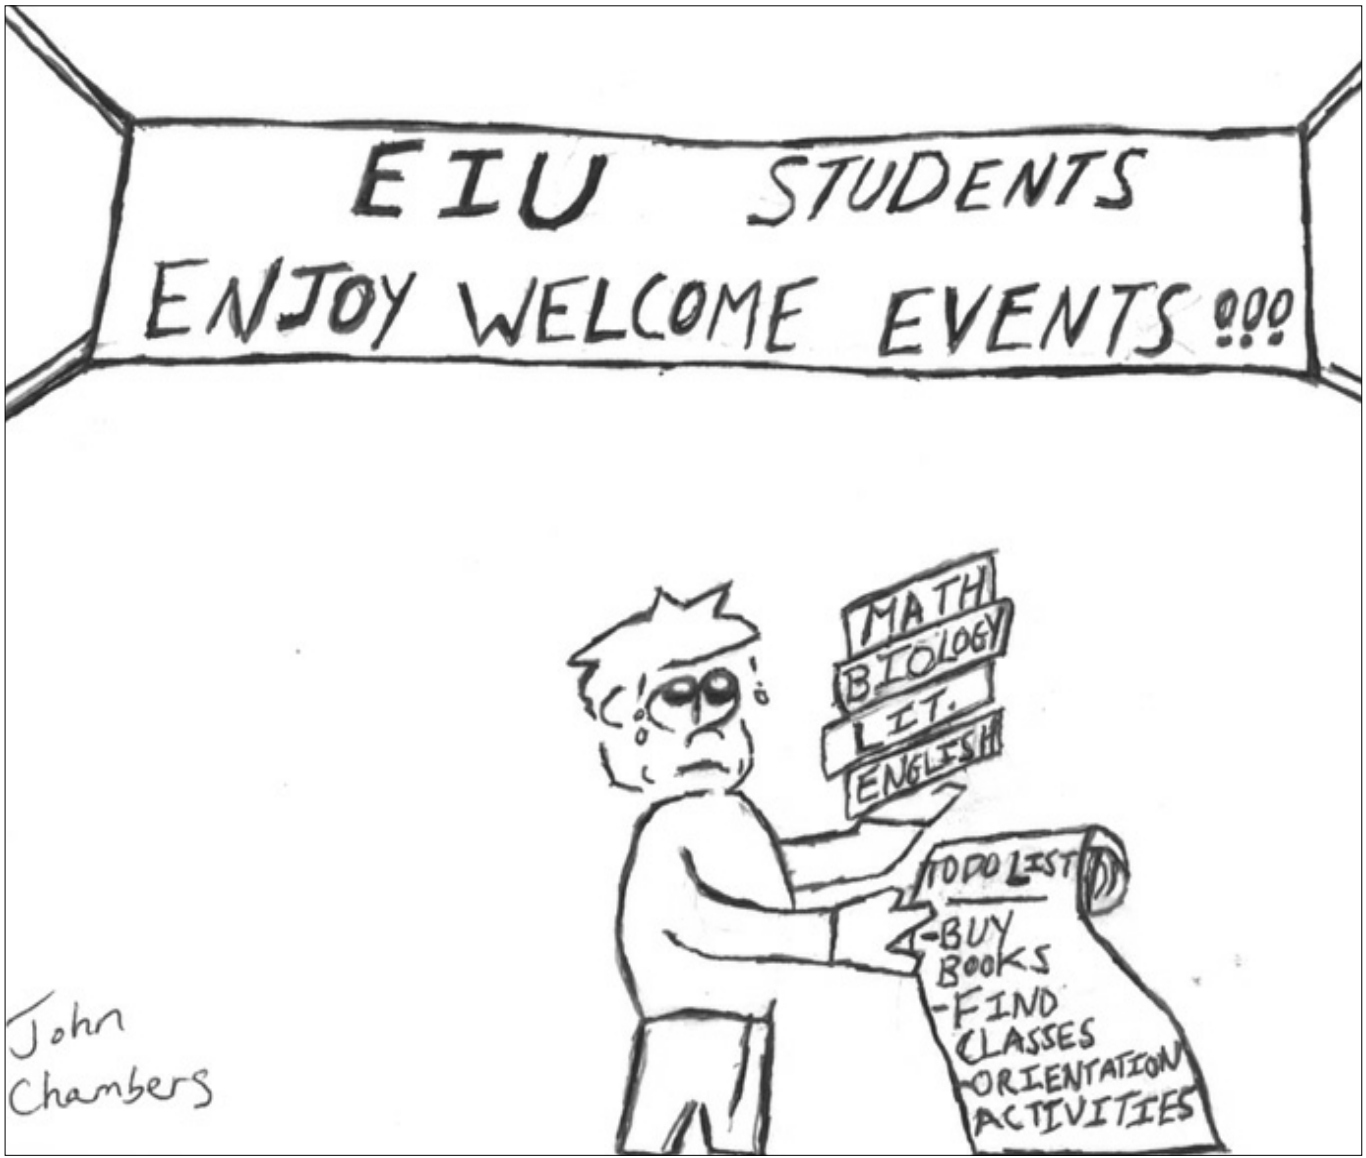 EIU STUDENTS
ENJOY WELCOME EVENTS!!!
MATH
BIOLOGY
LIT.
ENGLISH
TO DO LIST
-BUY
BOOKS
-FIND
CLASSES
-ORIENTATION
ACTIVITIES
John
Chambers